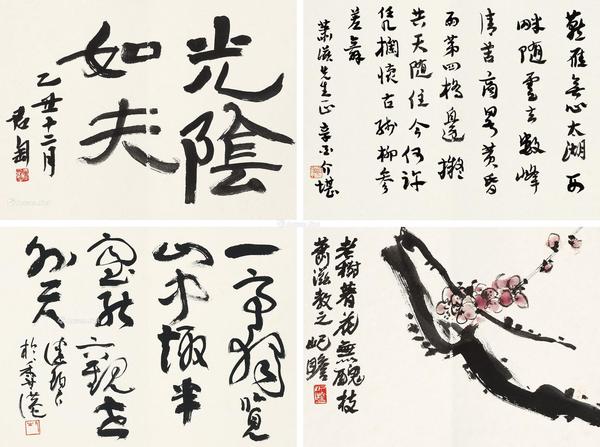 光陰
如夫
乙丑十二月
君匋
燕雁无心太湖西
畔隨雲去數峰
清苦商畧黃昏
雨第四橋邊擬
共天隨住今何許
凭闌懷古殘柳參
差舞
蕭滋先生正 介堪
一亭獨覽
山中趣半
室能觀世
外天
於香港
老樹著花無醜枝
蕭滋教之 屺瞻